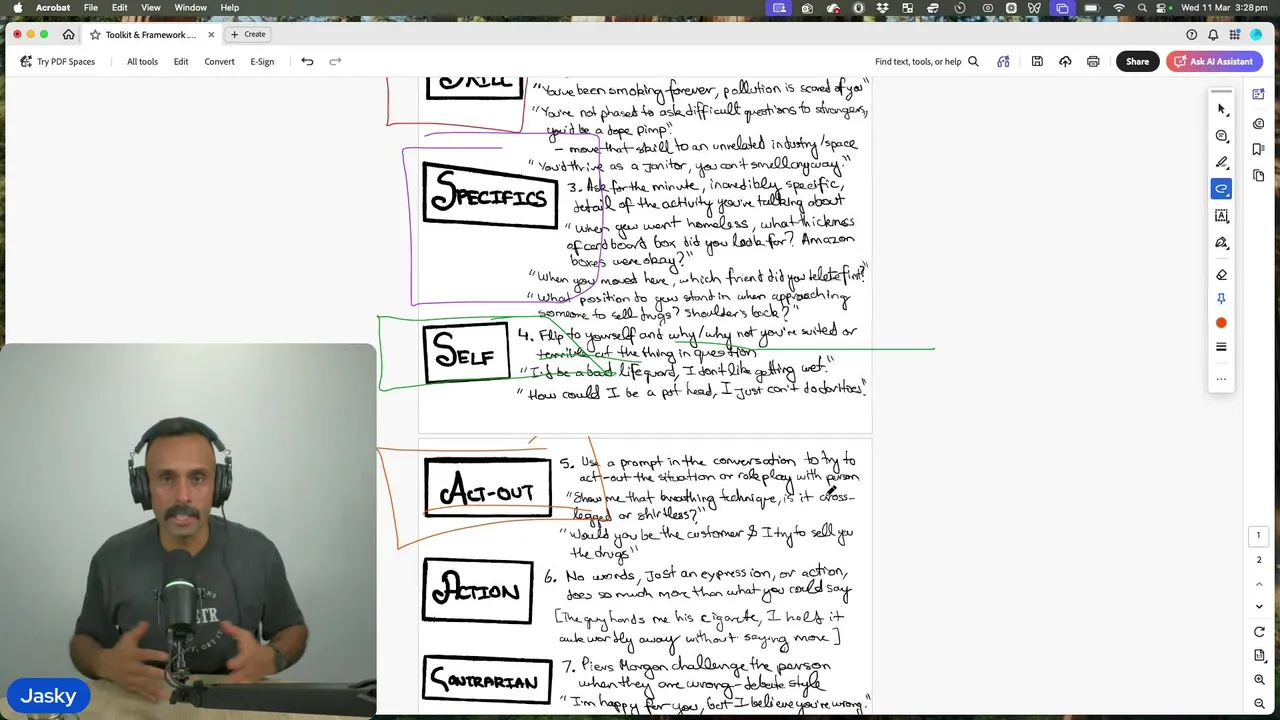 Acrobat File Edit View Window Help Wed 11 Mar 3:28 pm
Toolkit & Framework .... Create
Try PDF Spaces All tools Edit Convert E-Sign Find text, tools, or help Share Ask AI Assistant
SKILL
"You've been smoking forever, pollution is scared of you"
"You're not phased to ask difficult questions to strangers,
you'd be a dope pimp."
- move that skill to an unrelated industry/space
"You'd thrive as a janitor, you can't smell anyway."
SPECIFICS
3. Ask for the minute, incredibly specific,
detail of the activity you're talking about
"When you went homeless, what thickness
of cardboard box did you look for? Amazon
boxes were okay?"
"When you moved here, which friend did you delete first?"
"What position do you stand in when approaching
someone to sell drugs? Shoulder's back?"
SELF
4. Flip to yourself and why/why not you're suited or
terrible at the thing in question
"I'd be a bad lifeguard, I don't like getting wet."
"How could I be a pot head, I just can't do dorites."
ACT-OUT
5. Use a prompt in the conversation to try to
act-out the situation or roleplay with person
"Show me that breathing technique, is it cross-
legged or shirtless?"
"Would you be the customer & I try to sell you
the drugs"
ACTION
6. No words, just an expression, or action,
does so much more than what you could say
[The guy hands me his cigarete, I hold it
awkwardly away without saying more]
CONTRARIAN
7. Piers Morgan challenge the person
when they are wrong - debate style
"I'm happy for you, but I believe you're wrong."
1
2
Jasky